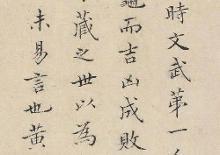 時文武第一
龜而吉凶成敗
藏之世以為
未易言也黃